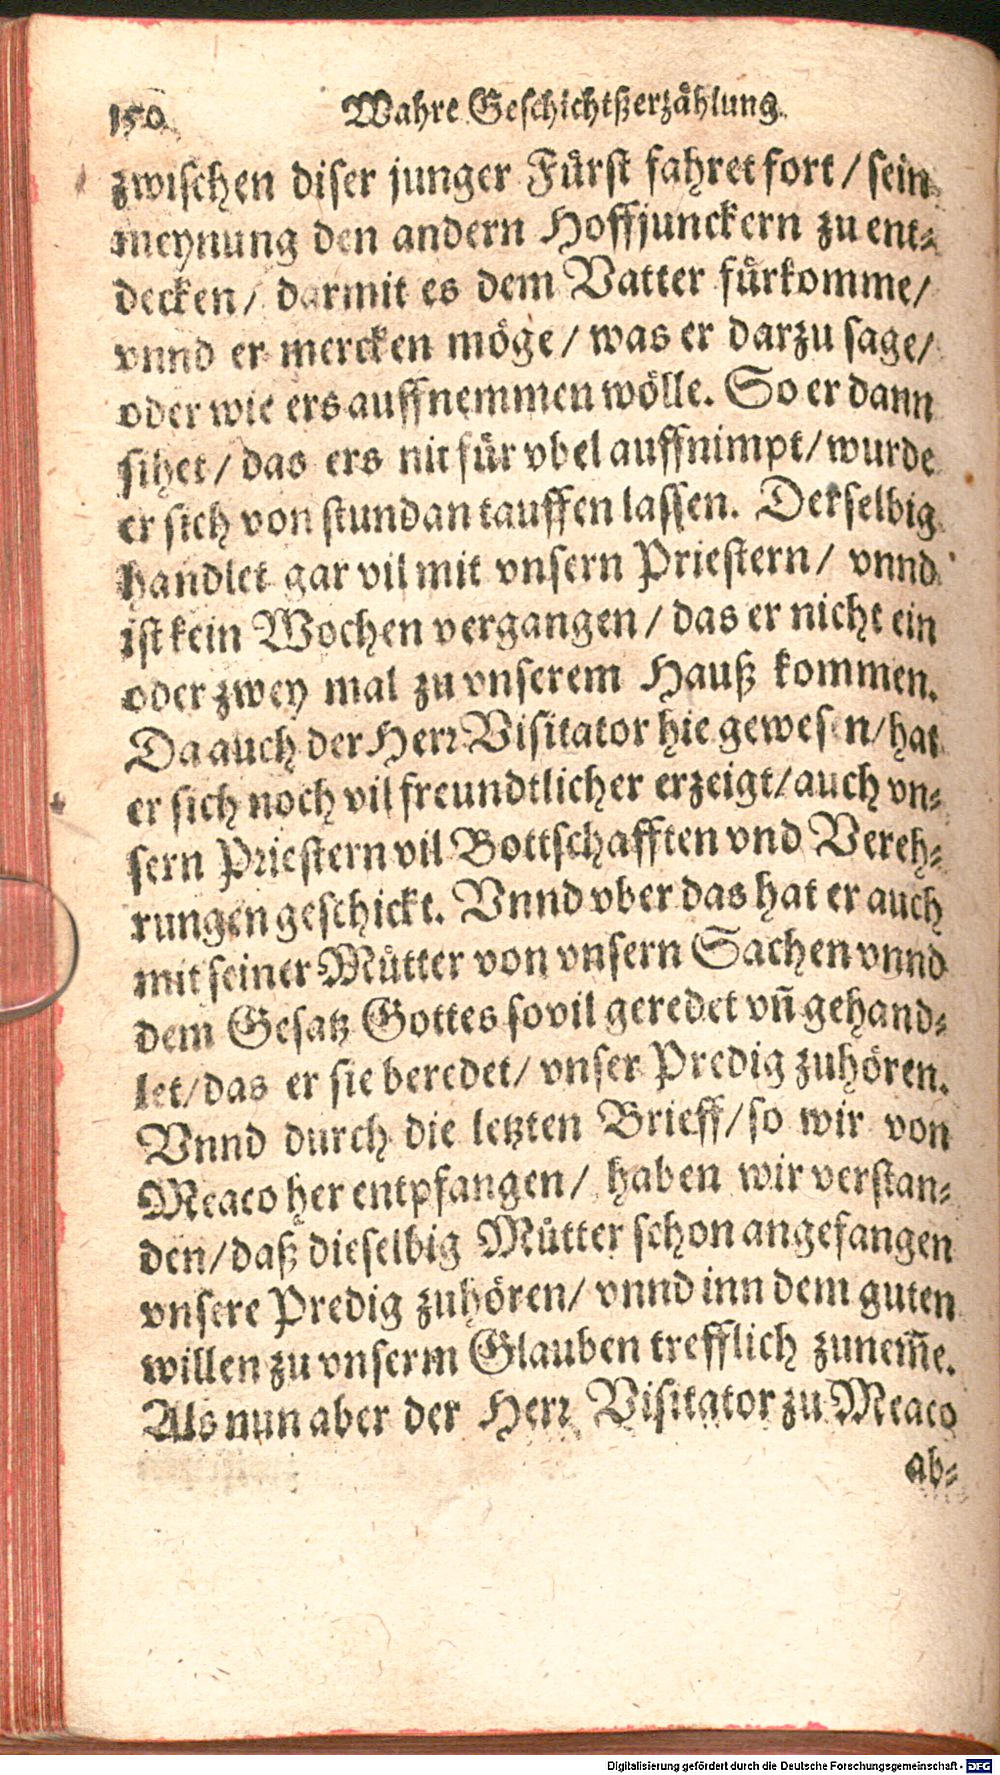 150 Wahre Geschichtßerzåhlung.
zwischen diser junger Fürst fahret fort / sein
meynung den andern Hoffjunckern zu ent⸗
decken / darmit es dem Vatter fürkomme /
vnnd er mercken möge / was er darzu sage /
oder wie ers auffnemmen wölle. So er dann
sihet / das ers nit für vbel auffnimpt / wurde
er sich von stundan tauffen lassen. Derselbig
handlet gar vil mit vnsern Priestern / vnnd
ist kein Wochen vergangen / das er nicht ein
oder zwey mal zu vnserem Hauß kommen.
Da auch der Herr Visitator hie gewesen / hat
er sich noch vil freundtlicher erzeigt / auch vn⸗
sern Priestern vil Bottschafften vnd Vereh⸗
rungen geschickt. Vnnd vber das hat er auch
mit seiner Můtter von vnsern Sachen vnnd
dem Gesatz Gottes sovil geredet vñ gehand⸗
let / das er sie beredet / vnser Predig zuhören.
Vnnd durch die letzten Brieff / so wir von
Meaco her entpfangen / haben wir verstan⸗
den / daß dieselbig Můtter schon angefangen
vnsere Predig zuhören / vnnd inn dem guten
willen zu vnserm Glauben trefflich zunem̃e.
Als nun aber der Herr Visitator zu Meaco
ab⸗
Digitalisierung gefördert durch die Deutsche Forschungsgemeinschaft - DFG